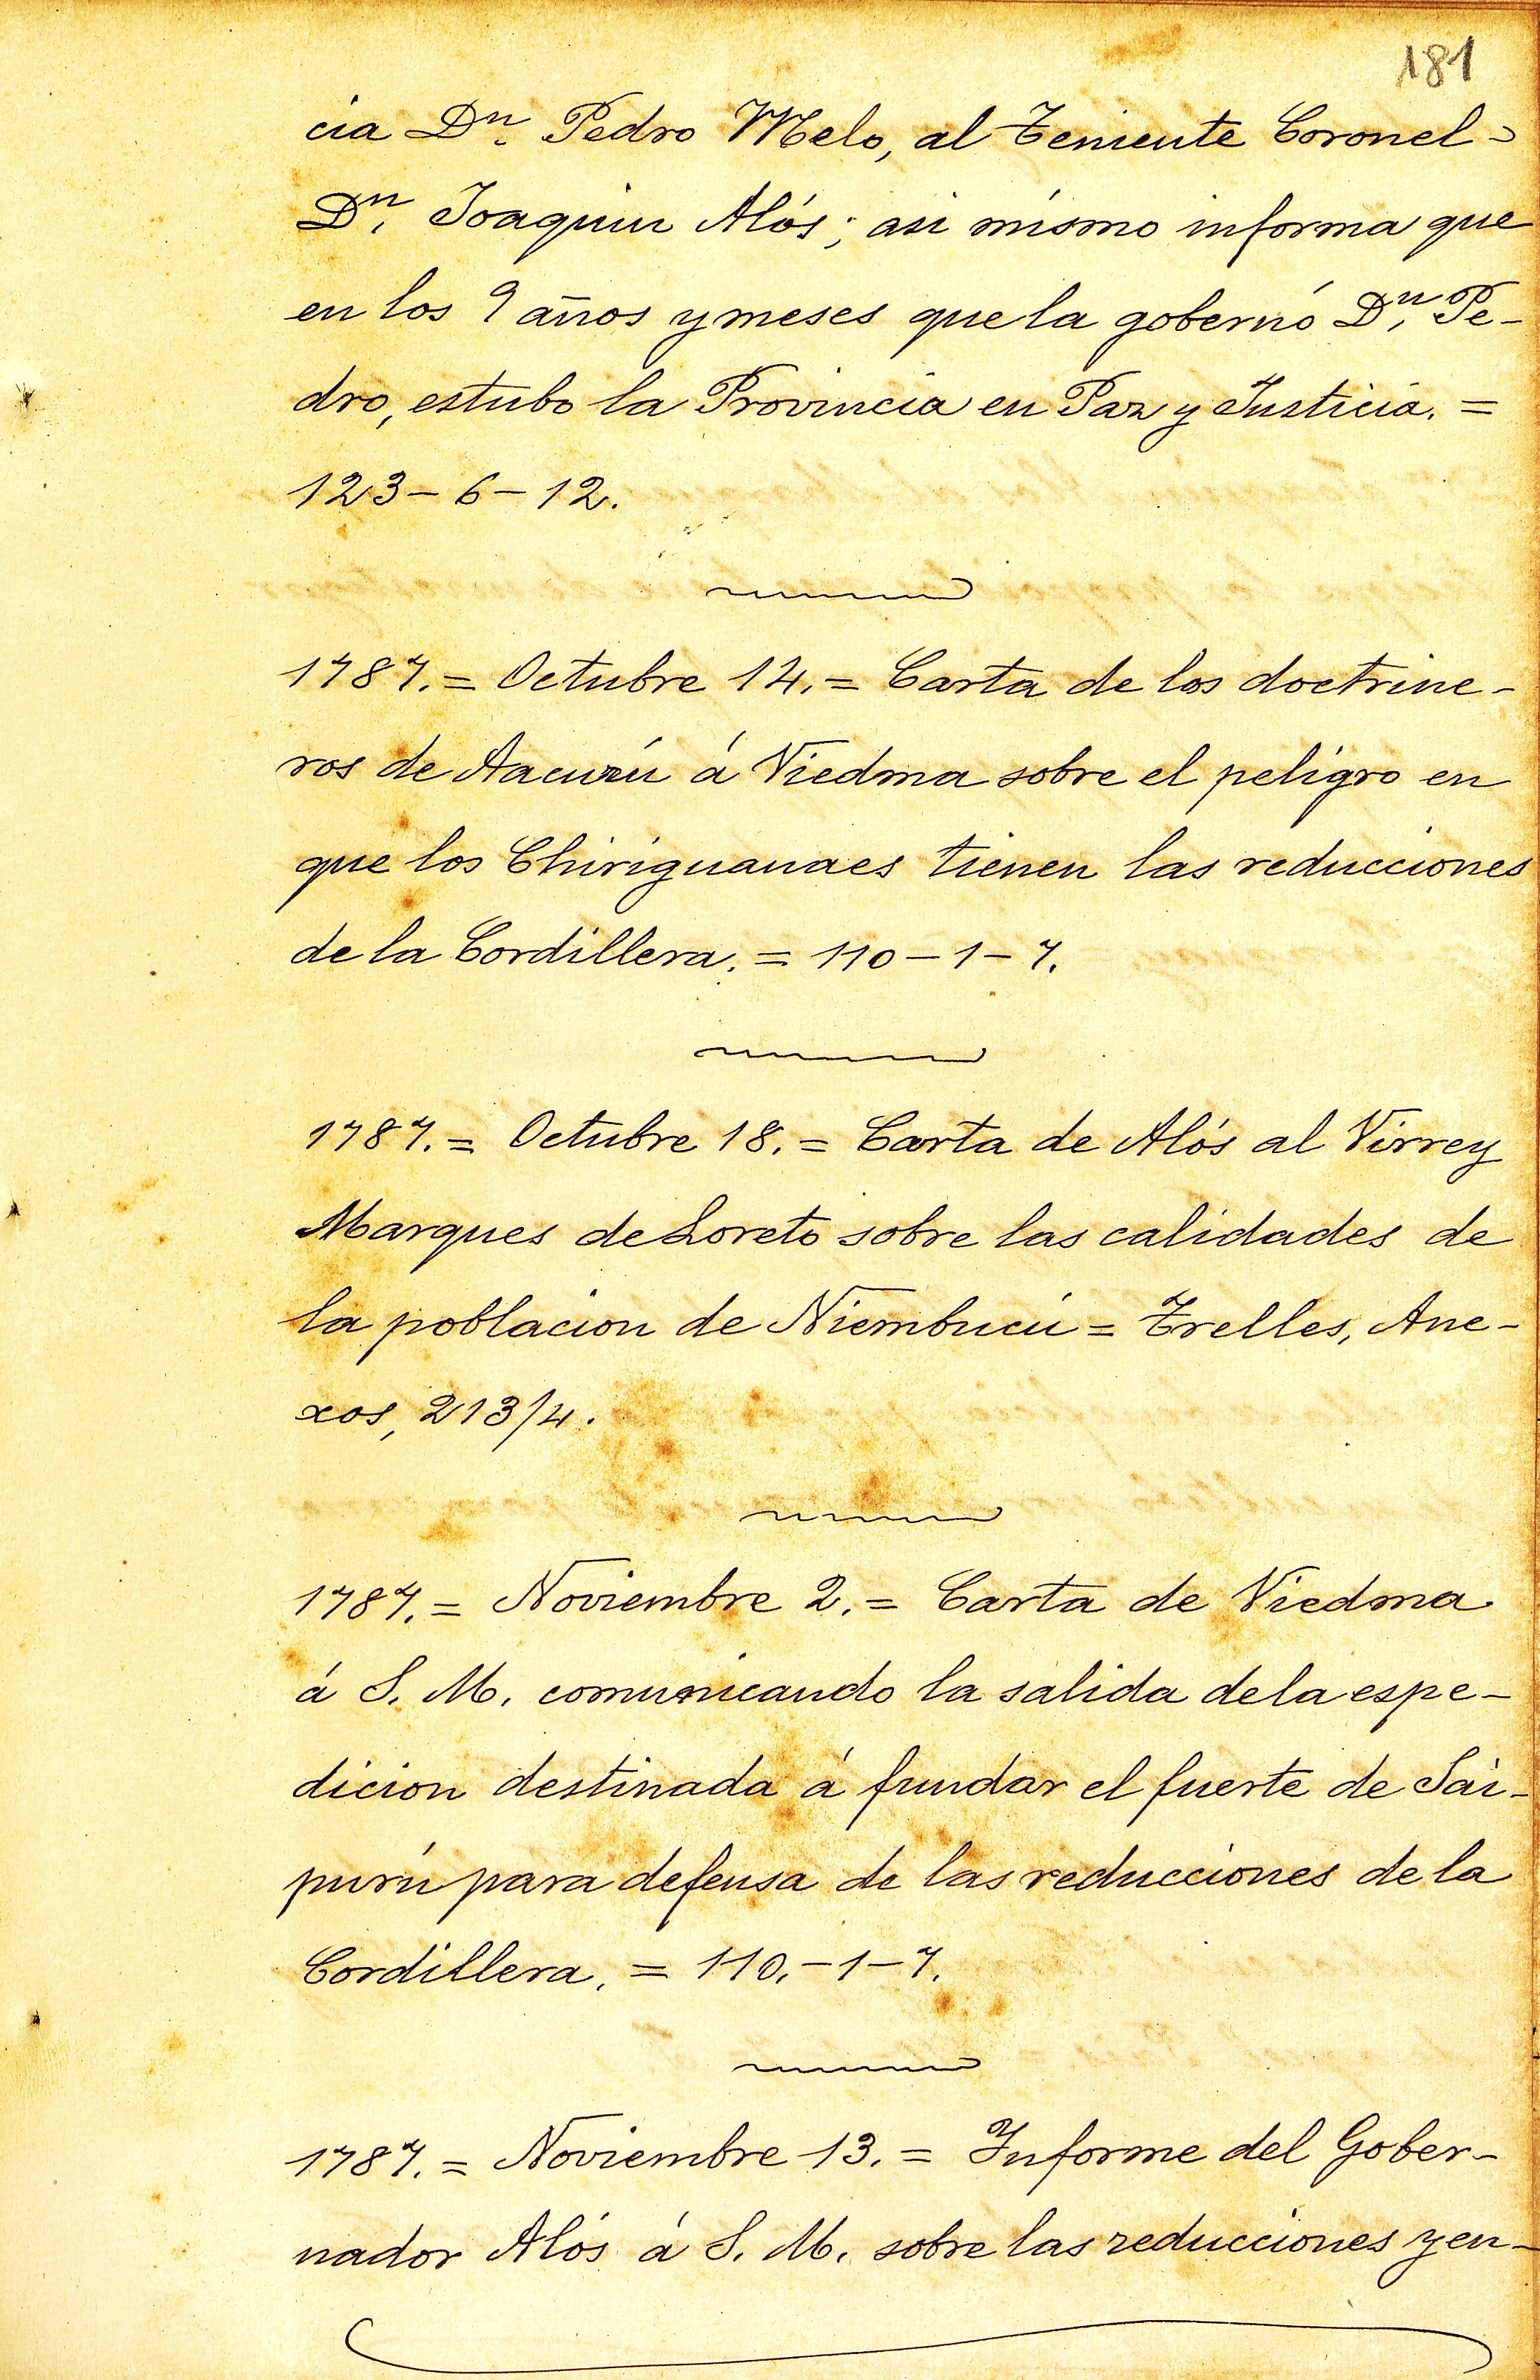 181
cia Dn. Pedro Melo, al Teniente Coronel
Dn. Joaquin Alós; asi mismo informa que
en los 9 años y meses que la gobernó Dn. Pe-
dro, estubo la Provincia en Paz y Justicia. =
123-6-12.
1787. = Octubre 14. = Carta de los doctrine-
ros de Aacurú á Viedma sobre el peligro en
que los Chiriguanaes tienen las reducciones
de la Cordillera. = 110-1-7.
1787. = Octubre 18. = Carta de Alós al Virrey
Marques de Loreto sobre las calidades de
la poblacion de Niembucú = Trelles, Ane-
xos, 213/4.
1787. = Noviembre 2. = Carta de Viedma
á S. M. comunicando la salida de la espe-
dicion destinada á fundar el fuerte de Sai-
purú para defensa de las reducciones de la
Cordillera. = 110.-1-7.
1787. = Noviembre 13. = Informe del Gober-
nador Alós á S. M. sobre las reducciones y en-